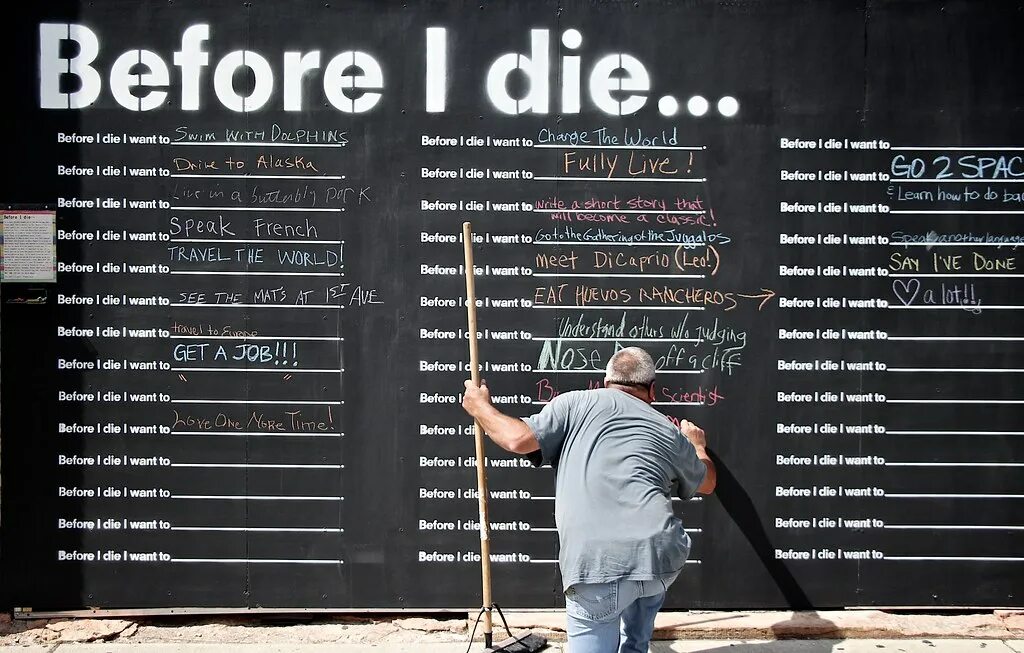 Before I die...
Before I die I want to SWIM WITH DOLPHINS.
Before I die I want to Drive to Alaska.
Before I die I want to Live in a butterfly park
Before I die I want to Speak French.
Before I die I want to TRAVEL THE WORLD!
Before I die I want to SEE THE MATS AT 1ST AVE
Before I die I want to travel to Europe
Before I die I want to GET A JOB!!!
Before I die I want to " "
Before I die I want to Love One More Time!
Before I die I want to
Before I die I want to
Before I die I want to
Before I die I want to
Before I die I want to Change The World
Before I die I want to Fully Live!
Before I die I want to write a short story that
will become a classic!
Before I die I want to Go to the Gathering of the Juggalos
Before I die I want to meet DiCaprio (Leo!)
Before I die I want to EAT HUEVOS RANCHEROS →
Before I die I want to Understand others w/o judging
Before I die I want to Nose off a cliff
Before I die I want to Scientist
Before I die
Before I die I want to
Before I die I want to
Before I die I want to
Before I die I want to
Before I die I want to
Before I die I want to GO 2 SPAC
Before I die I want to & Learn how to do
Before I die I want to Speak another language
Before I die I want to SAY I'VE DONE
Before I die I want to ♡ a lot!!,
Before I die I want to
Before I die I want to
Before I die I want to
Before I die I want to
Before I die I want to
Before I die I want to
Before I die I want to
Before I die I want to
Before I die...